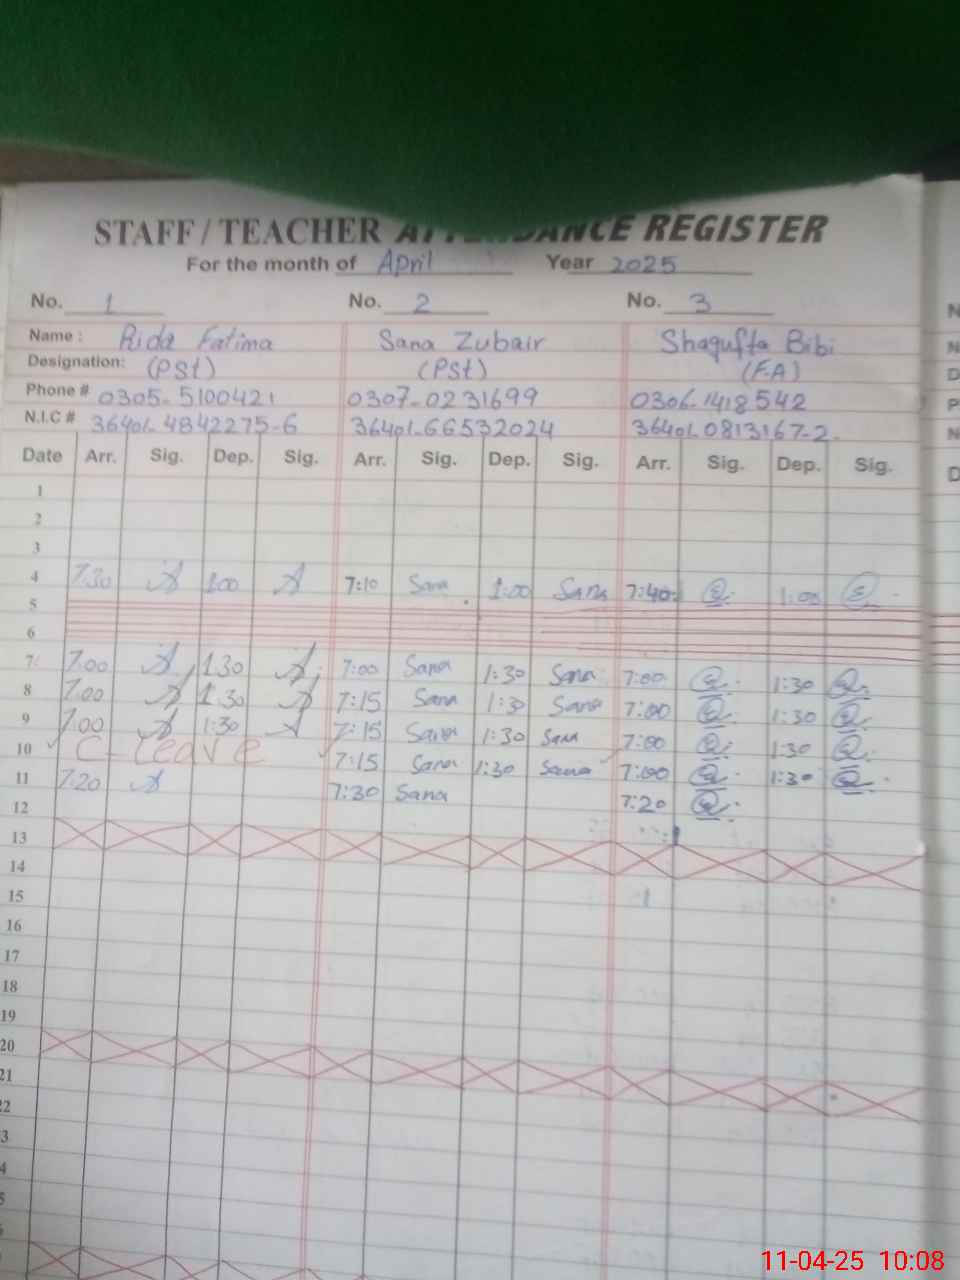 STAFF / TEACHER ATTENDANCE REGISTER
For the month of April Year 2025
No. 1 No. 2 No. 3
Name : Rida Fatima Sana Zubair Shagufta Bibi
Designation: (PSt) (PSt) (F.A)
Phone # 0305-5100421 0307-0231699 0306-1418542
N.I.C # 36401-4842275-6 36401-66532024 36401-0813167-2
Date Arr. Sig. Dep. Sig. Arr. Sig. Dep. Sig. Arr. Sig. Dep. Sig.
1
2
3
4 7.30 1.00 7:10 Sana 1:00 Sana 7:40 1:00
5
6
7 7.00 1.30 7:00 Sana 1:30 Sana 7:00 1:30
8 7.00 1.30 7:15 Sana 1:30 Sana 7:00 1:30
9 7.00 1:30 7:15 Sana 1:30 Sana 7:00 1:30
10 C leave 7:15 Sana 1:30 Sana 7:00 1:30
11 7.20 7:30 Sana 7:20
12
13
14
15
16
17
18
19
20
21
22
11-04-25 10:08